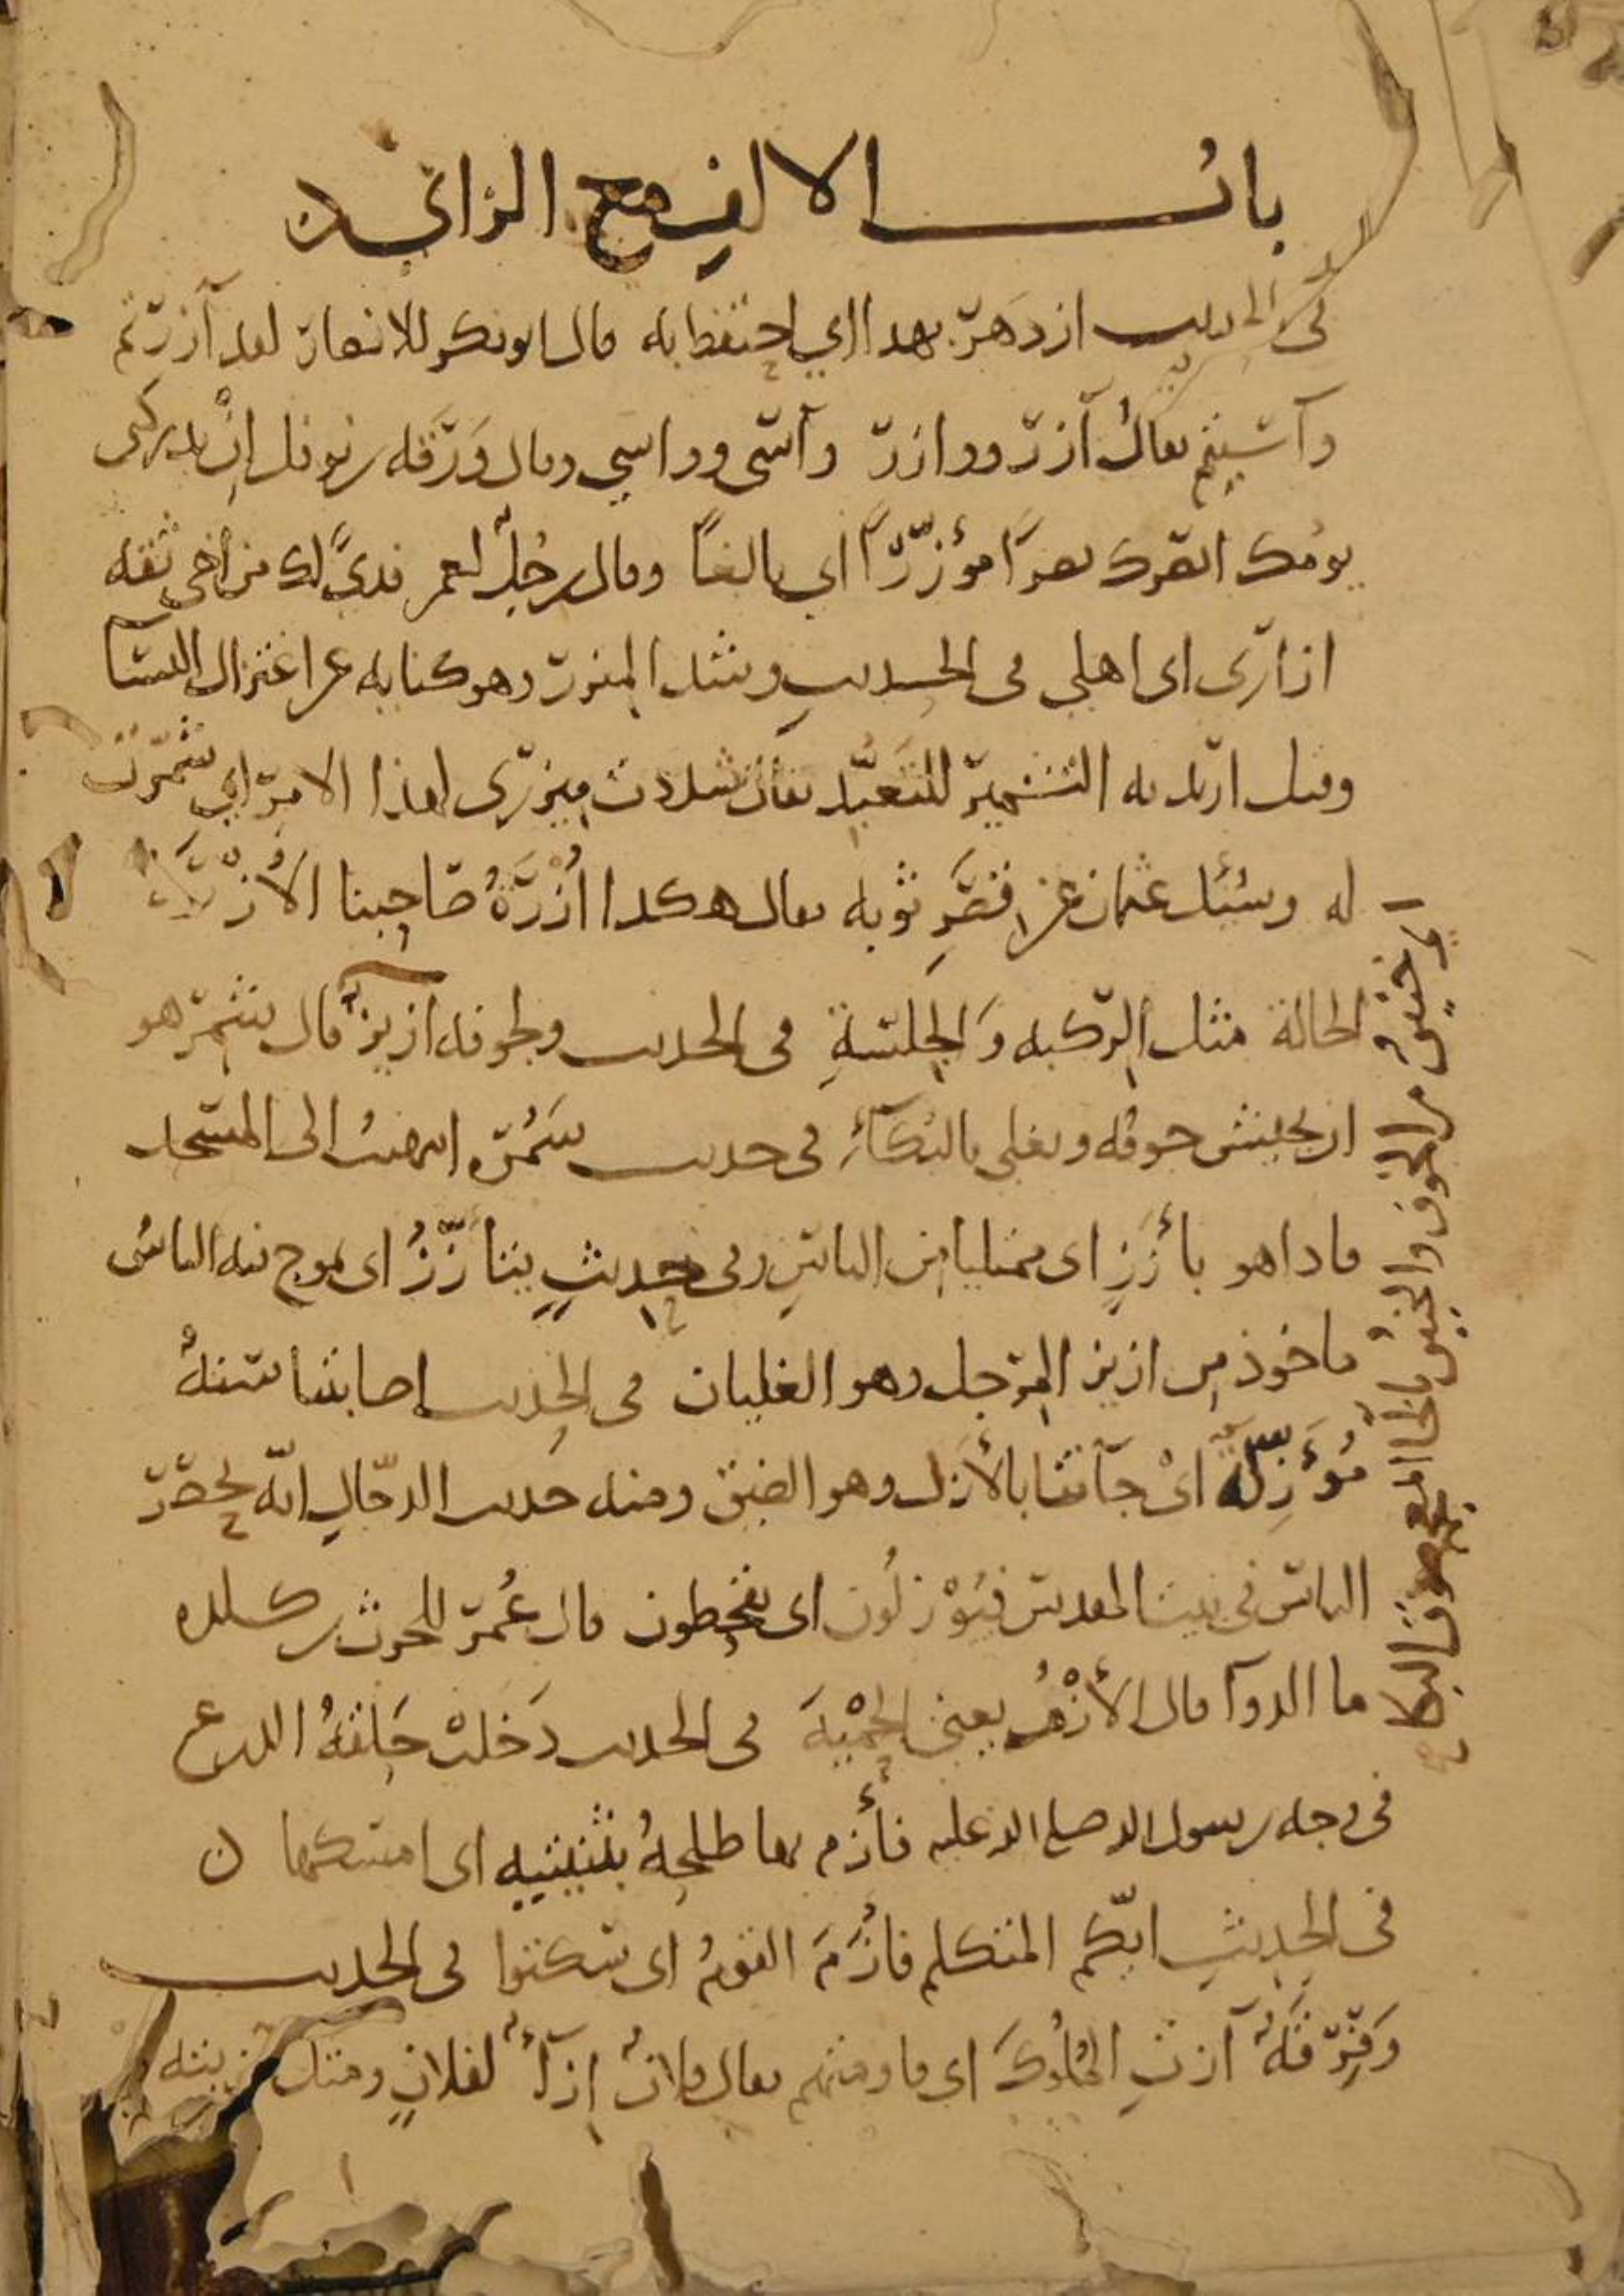 باب الالف مع الزاي
في الحديث ازدهر بهذا اي احتفظ به قال ابو بكر للانصار لقد آزرتم
وآسيتم يقال آزر ووازر وآسى وواسى وقال ورقة بن نوفل إن يدركني
يومك انصرك نصرًا مؤزّرًا اي بالغًا وقال رجل لعمر فدىً لك من أخي ثقة
ازاري اي اهلي في الحديث وشد المئزر وهو كناية عن اعتزال النسآ
وقيل اريد به التشمير للتعبّد يقال شددت ميزري لهذا الامر اي شمّرت
له وسُئل عثمان عن قصر ثوبه فقال هكذا أُزرَةُ صاحبنا الأزرة
الحالة مثل الركبة وَالجِلسَةِ في الحديث ولجوفه ازيز قال شمر هو
ان يجيش جوفه ويغلي بالبكآء في حديث سَمُرة انتهيت الى المسجد
فاذا هو بأَزَزٍ اي ممتليا من الناس وفي حديثٍ يتأزّزُ اي يموج فيه الناس
ماخوذ من ازيز المرجل وهو الغليان في الحديث اصابتنا سنةٌ
مُؤَزِلَةٌ اي جآتنا بالأَزل وهو الضيق ومنه حديث الدجّال انّه يحصر
الناس في بيت المقدس فيُؤْزلُون اي يقحطون قال عُمر للحرث بن كلده
ما الدوآ قال الأَزْمُ يعني الحِمْيَةَ في الحديث دَخلتْ حَلقةُ الدرع
في وجه رسول الله صلى الله عليه فأزم بها طلحةُ بثنيتيه اي امسكها ن
في الحديثِ ايّكم المتكلم فازَمَ القومُ اي سكتوا في الحديث
وَفِرْقَةٌ آزتِ المُلُوكَ اي قاومتهم يقال فلانٌ إزآءٌ لفلانٍ ومثل
اي خنين من الخوف والخنين بالخا المعجمة صوت البكا